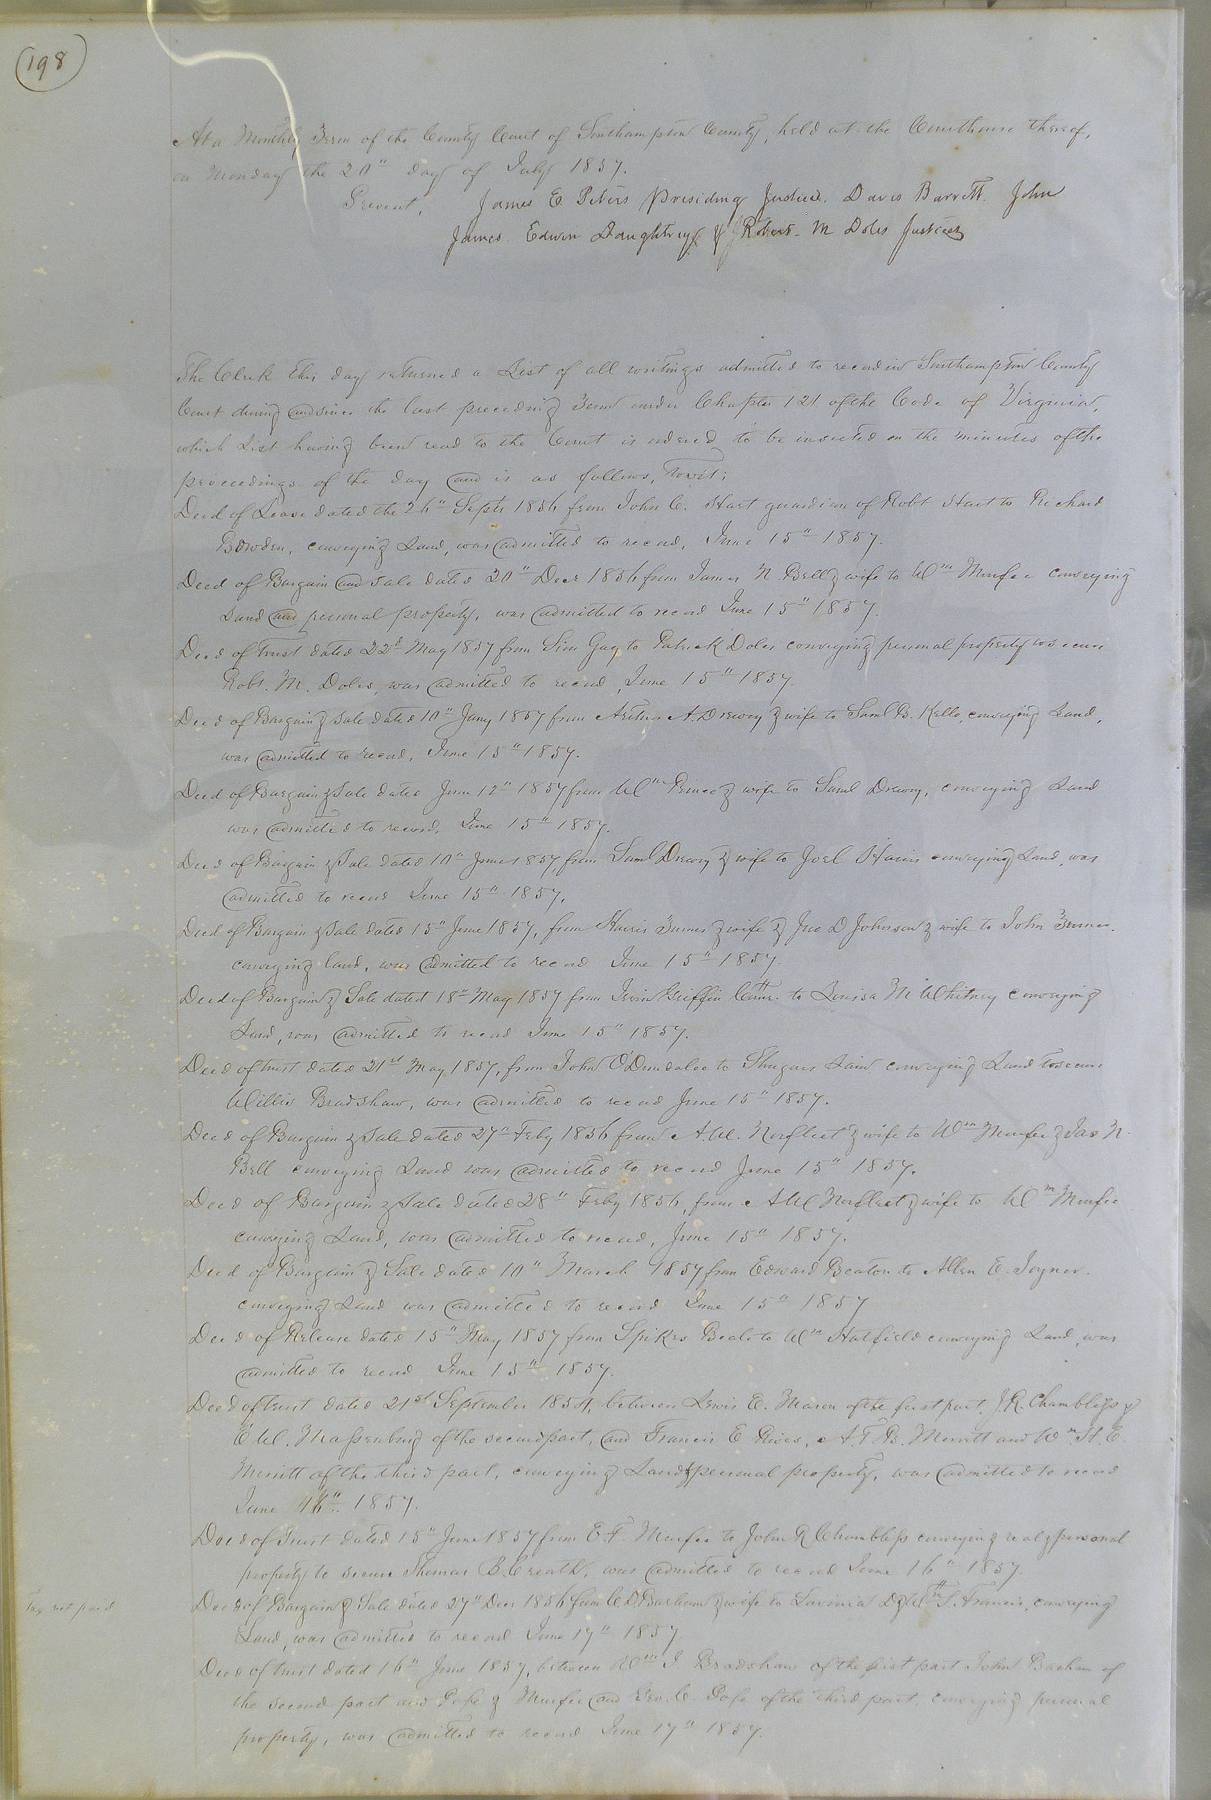 198
At a Monthly Term of the County Court of Southampton County, held at the Courthouse thereof,
on Monday the 20" day of July 1857.
Present, James E Peters Presiding Justice. Davis Barrett. John
James. Edwin Daughtrey & Robert M Doles Justices
The Clerk this day returned a List of all writings admitted to record in Southampton County
Court during and since the last preceding Term under Chapter 121 of the Code of Virginia,
which List having been read to the Court is ordered to be inserted on the minutes of the
proceedings of the day and is as follows, Towit;
Deed of Lease dated the 26" Septr 1856 from John C. Hart guardian of Robt Hart to Richard
Bowden, conveying Land, was admitted to record, June 15" 1857.
Deed of Bargain and Sale dated 20" Decr 1856 from James N. Bell & wife to Wm Murfee conveying
Land and personal property, was admitted to record June 15" 1857.
Deed of trust dated 22d May 1857 from Sion Gay to Patrick Doles conveying personal property to secure
Robt. M. Doles, was admitted to record, June 15" 1857.
Deed of Bargain & Sale dated 10" Jany 1857 from Arthur A. Drewry & wife to Saml B. Kello, conveying Land,
was admitted to record, June 15" 1857.
Deed of Bargain & Sale dated June 12" 1857 from Wm Prince & wife to Saml Drewry, conveying Land
was admitted to record, June 15" 1857.
Deed of Bargain & Sale dated 10" June 1857, from Saml Drewry & wife to Joel Harris conveying Land, was
admitted to record June 15" 1857.
Deed of Bargain & Sale dated 15" June 1857, from Harris Turner & wife & Jno D Johnson & wife to John Turner.
conveying land, was admitted to record June 15" 1857.
Deed of Bargain & Sale dated 18" May 1857 from Irvin Griffin to Louisa M Whitney conveying
Land, was admitted to record June 15" 1857.
Deed of trust dated 21st May 1857, from John O'Dundaloe to Shugars Lain conveying Land to secure
Willis Bradshaw, was admitted to record June 15" 1857.
Deed of Bargain & Sale dated 27" Feby 1856 from A.W. Norfleet & wife to Wm Murfee & Jas N.
Bell conveying Land was admitted to record June 15" 1857.
Deed of Bargain & Sale dated 28" Feby 1856, from A W Norfleet & wife to Wm Murfee
conveying Land, was admitted to record, June 15" 1857.
Deed of Bargain & Sale dated 10" March 1857 from Edward Beaton to Allen E. Joyner.
conveying Land was admitted to record June 15" 1857
Deed of Release dated 15" May 1857 from Spikes Beale to Wm Hatfield conveying Land, was
admitted to record June 15" 1857.
Deed of trust dated 21st September 1854, between Lewis E. Mason of the first part, J.R. Chambliss &
E W. Massenburg of the second part, and Francis E Rives, A.T.B. Merritt and Wm H. E.
Merritt of the third part, conveying Land & personal property, was admitted to record
June 16" 1857.
Deed of Trust dated 15" June 1857 from E.F. Murfee to John R Chambliss conveying real & personal
property to secure Thomas B. Creath, was admitted to record June 16" 1857.
Tax not paid
Deed of Bargain & Sale dated 27" Decr 1856 from C D Barham & wife to Lavinia D & T. Francis, conveying
Land, was admitted to record June 17" 1857
Deed of trust dated 16" June 1857, between Wm J. Bradshaw of the first part John Barham of
the second part and Pope & Murfee and Geo. W. Pope of the third part, conveying personal
property, was admitted to record June 17" 1857.